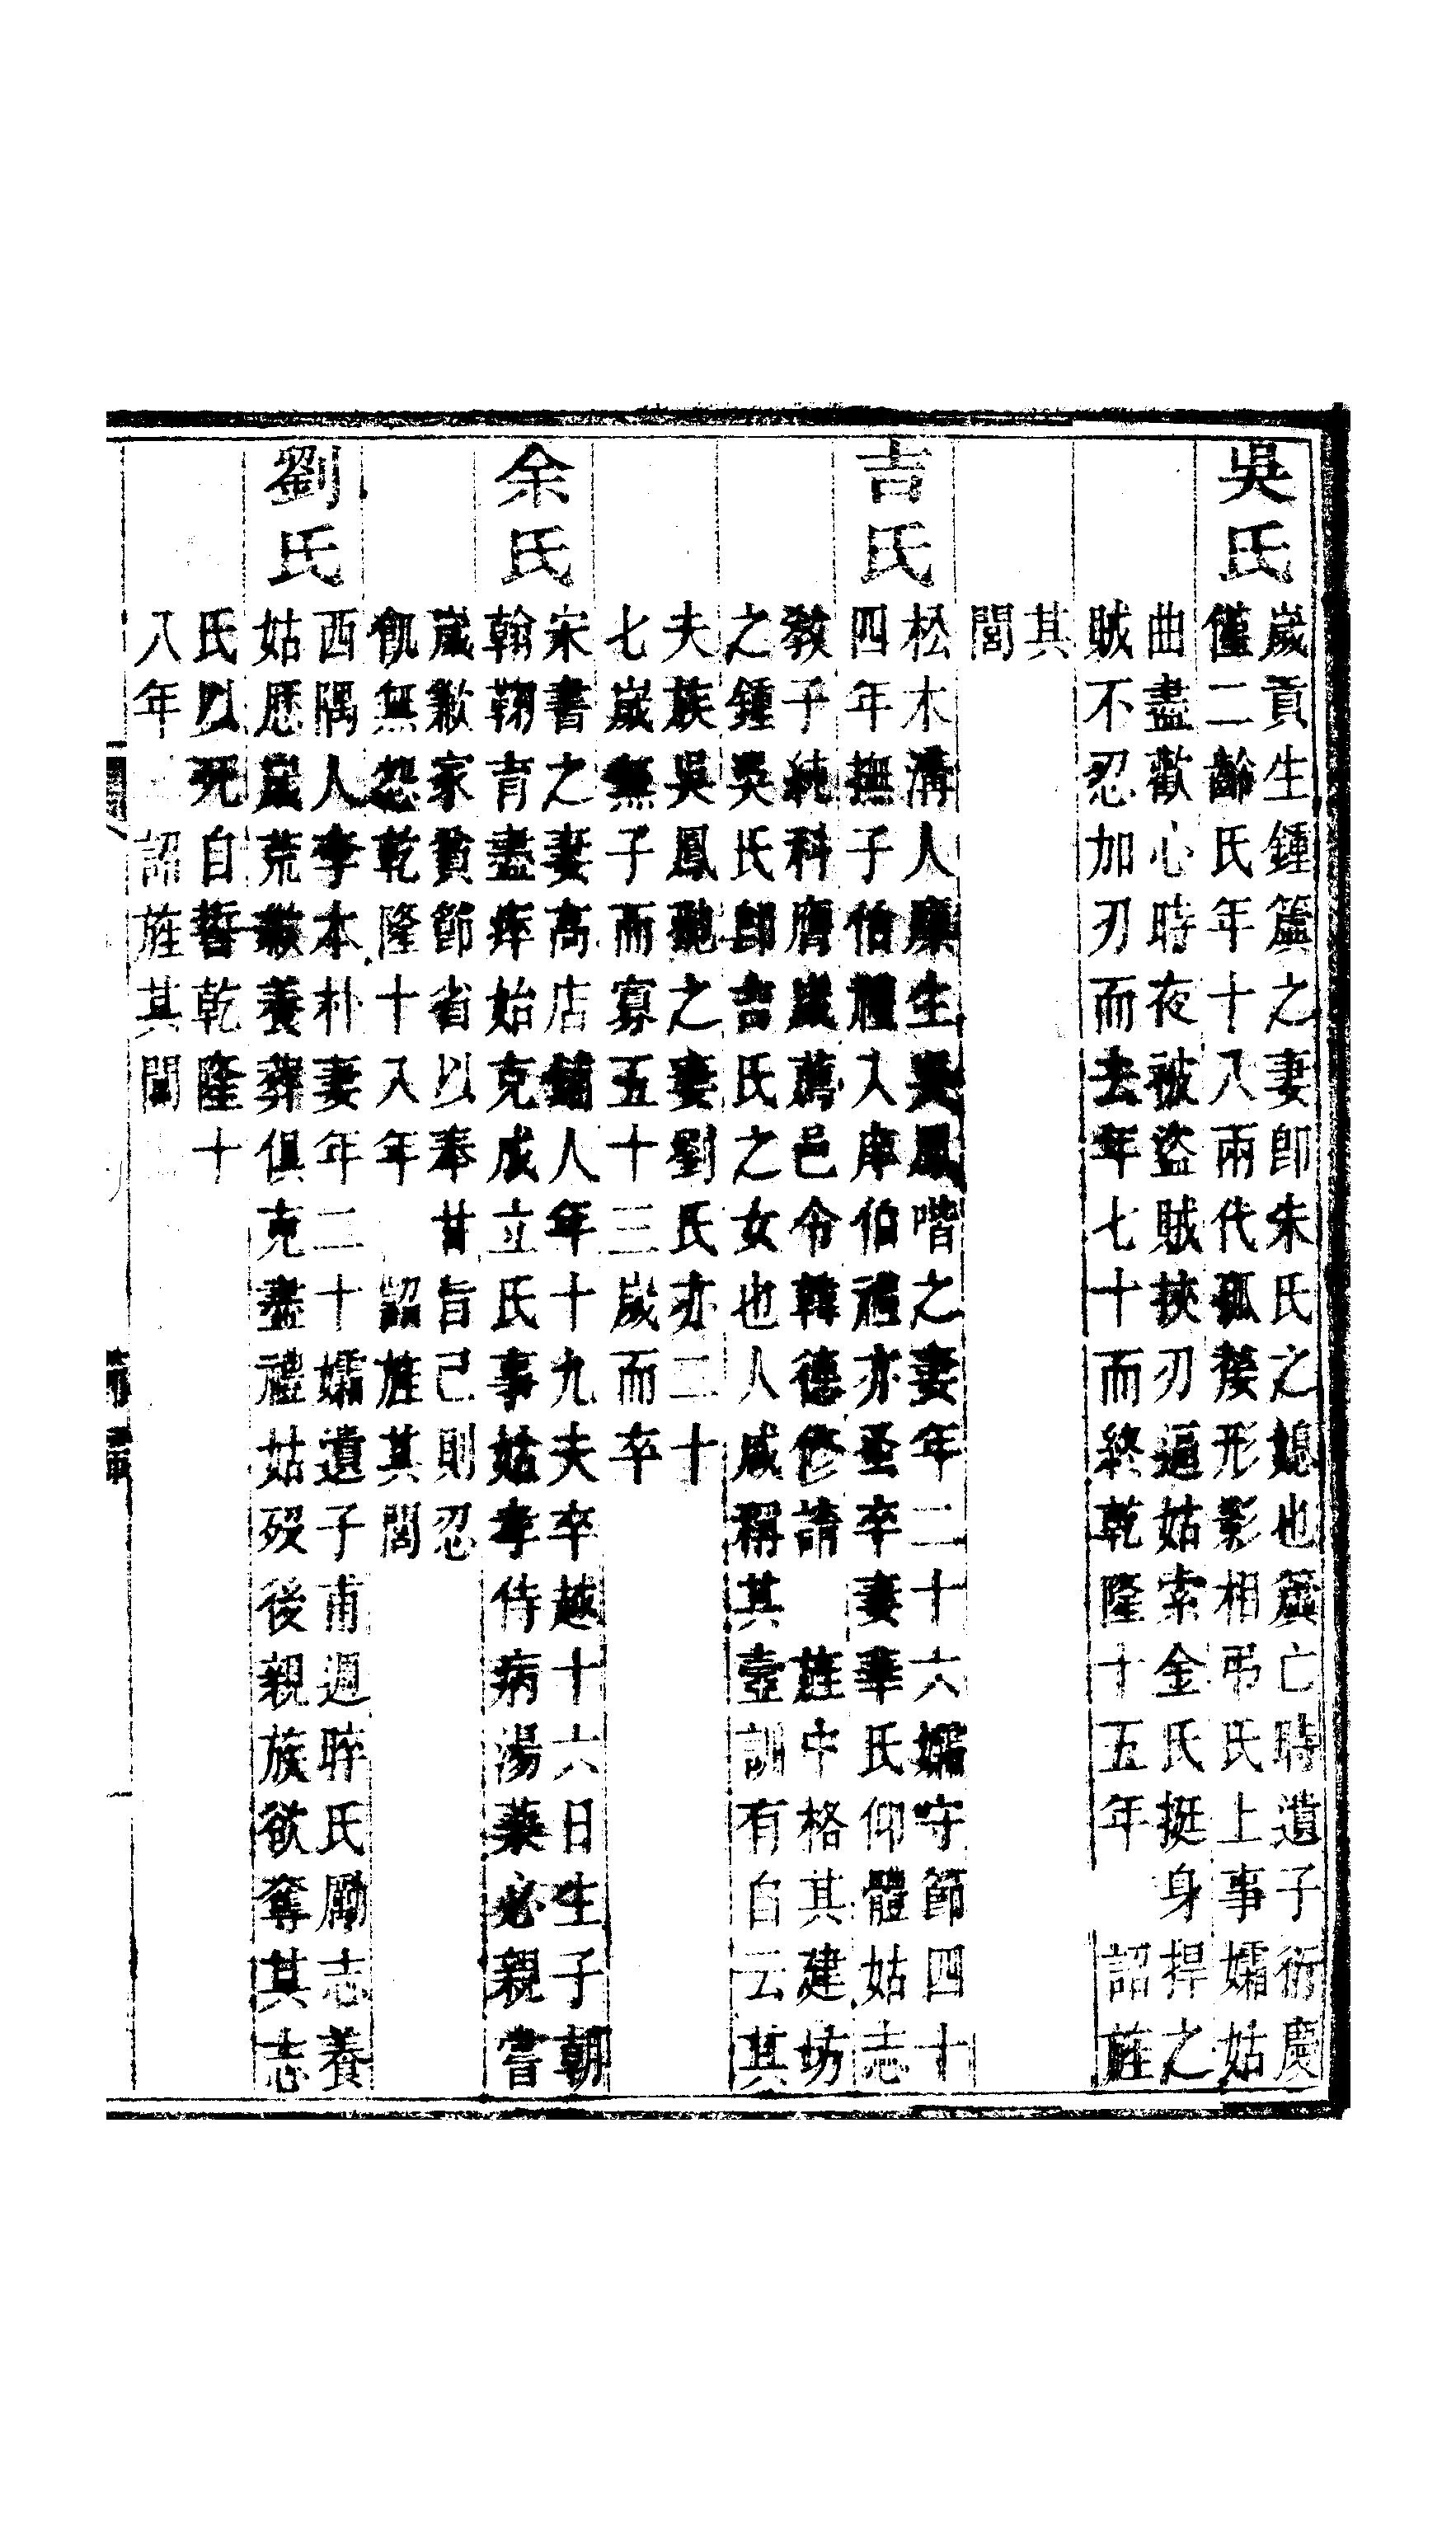 吳氏
歲貢生鍾簴之妻卽朱氏之媳也簴亡時遺子衍慶
僅二齡氏年十八兩代孤嫠形影相弔氏上事孀姑
曲盡歡心時夜被盜賊挾刃逼姑索金氏挺身捍之
賊不忍加刃而去年七十而終乾隆十五年 詔旌
其
閭
吉氏
松木溝人廩生吳鳳喈之妻年二十六孀守節四十
四年撫子伯禮入庠伯禮亦蚤卒妻華氏仰體姑志
敎子純科膺歲薦邑令韓德修請 旌中格其建坊
之鍾吳氏卽吉氏之女也人咸稱其壼訓有自云其
夫族吳鳳之妻劉氏亦二十
七歲無子而寡五十三歲而卒
余氏
宋書之妻高店鋪人年十九夫卒越十六日生子朝
翰鞠育盡瘁始克成立氏事姑孝侍病湯藥必親嘗
歲歉家貧節省以奉甘旨己則忍
飢無怨乾隆十八年 詔旌其閭
劉氏
西隅人李本朴妻年二十孀遺子甫週晬氏勵志養
姑歷歲荒歉養葬俱克盡禮姑歿後親族欲奪其志
氏以死自誓乾隆十
八年 詔旌其閭